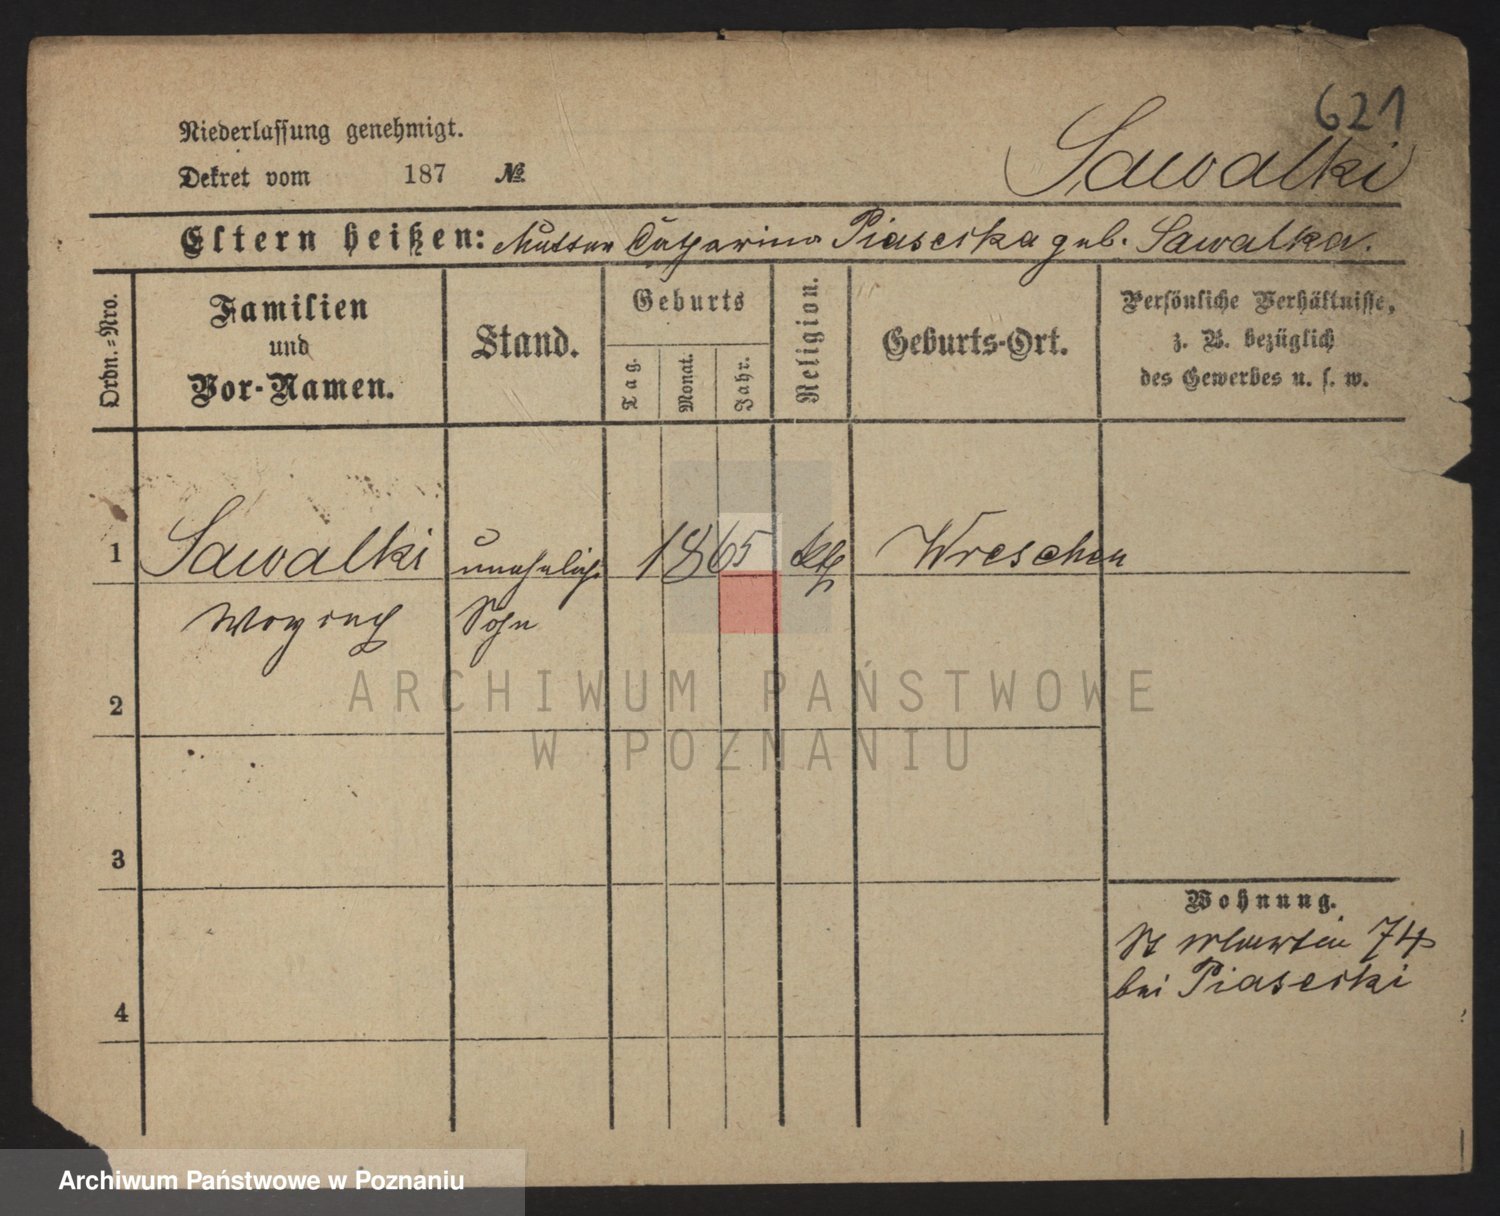 621
Niederlassung genehmigt.
Dekret vom 187 №
Sawalki
Eltern heißen: Mutter Catharina Piasecka geb. Sawalka.
Ordn.-Nro.
Familien und Vor-Namen.
Stand.
Geburts
Tag.
Monat.
Jahr.
Religion.
Geburts-Ort.
Persönliche Verhältnisse,
z. B. bezüglich
des Gewerbes u. s. w.
1 Sawalki unehelich. 1865 kth Wreschen
Sohn
2
3
4
Wohnung.
St Martin 74
bei Piasecki
ARCHIWUM PAŃSTWOWE
W POZNANIU
Archiwum Państwowe w Poznaniu